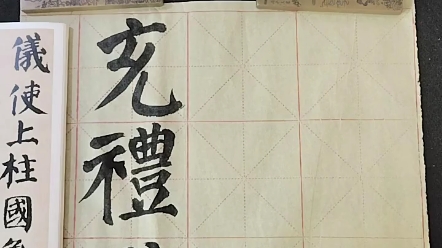 充禮
儀使上柱國